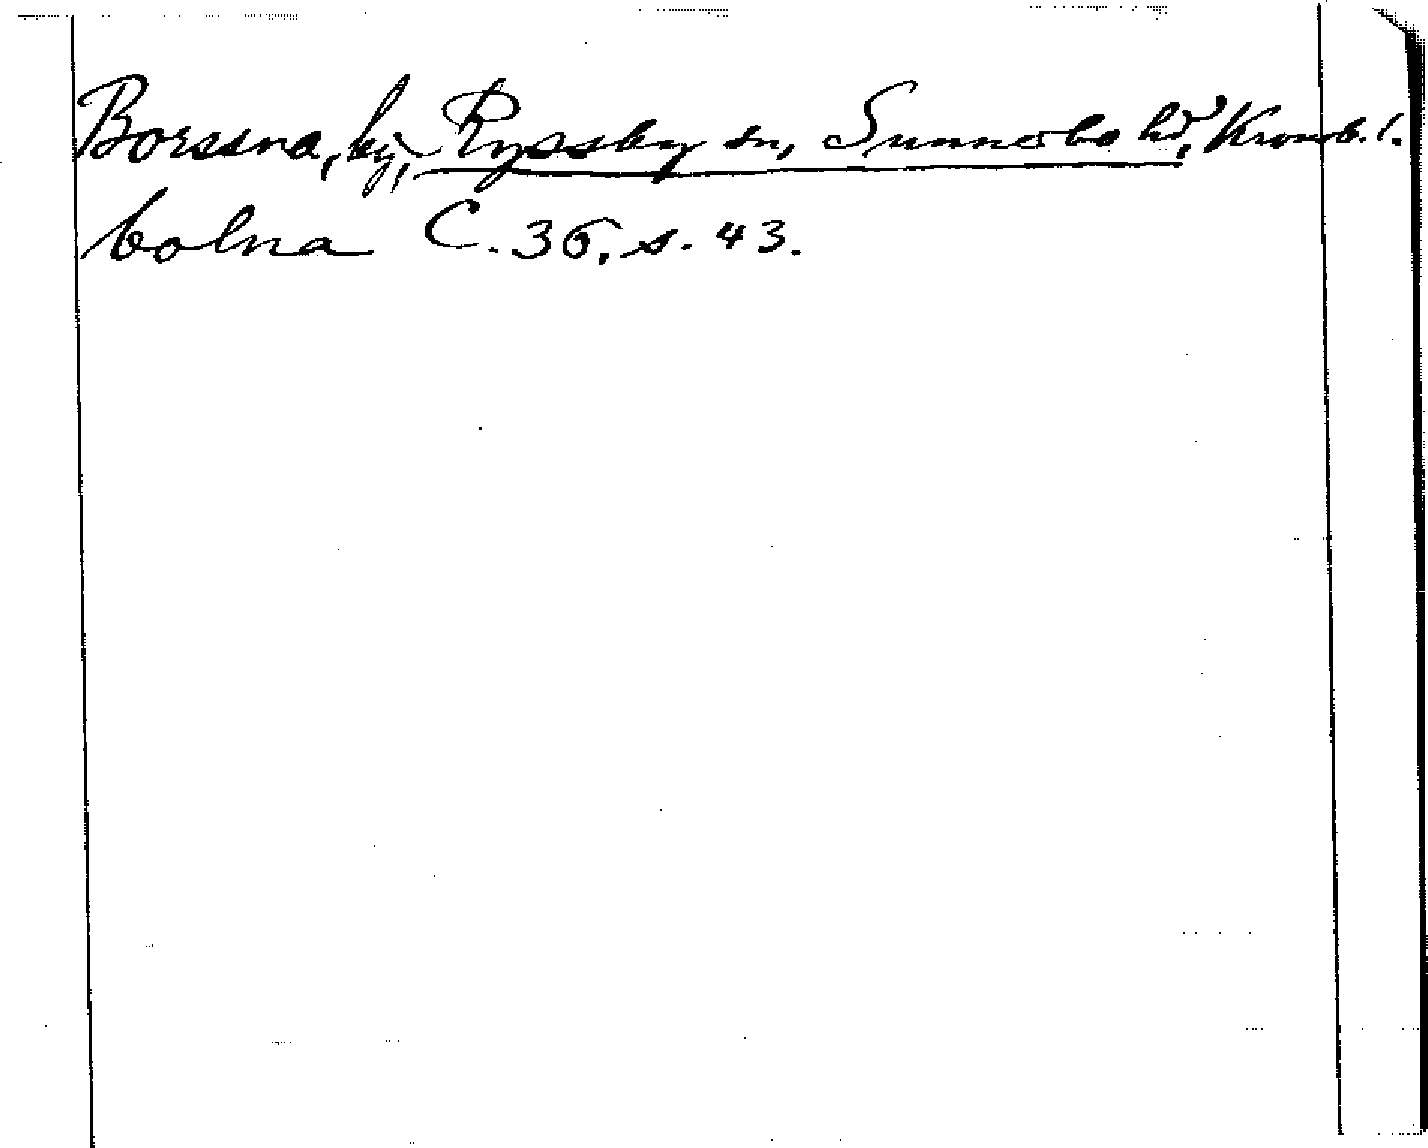 Borssna, by, Ryssby sn, Sunnerbo hd, Kronob. l.
bolna C. 36, s. 43.